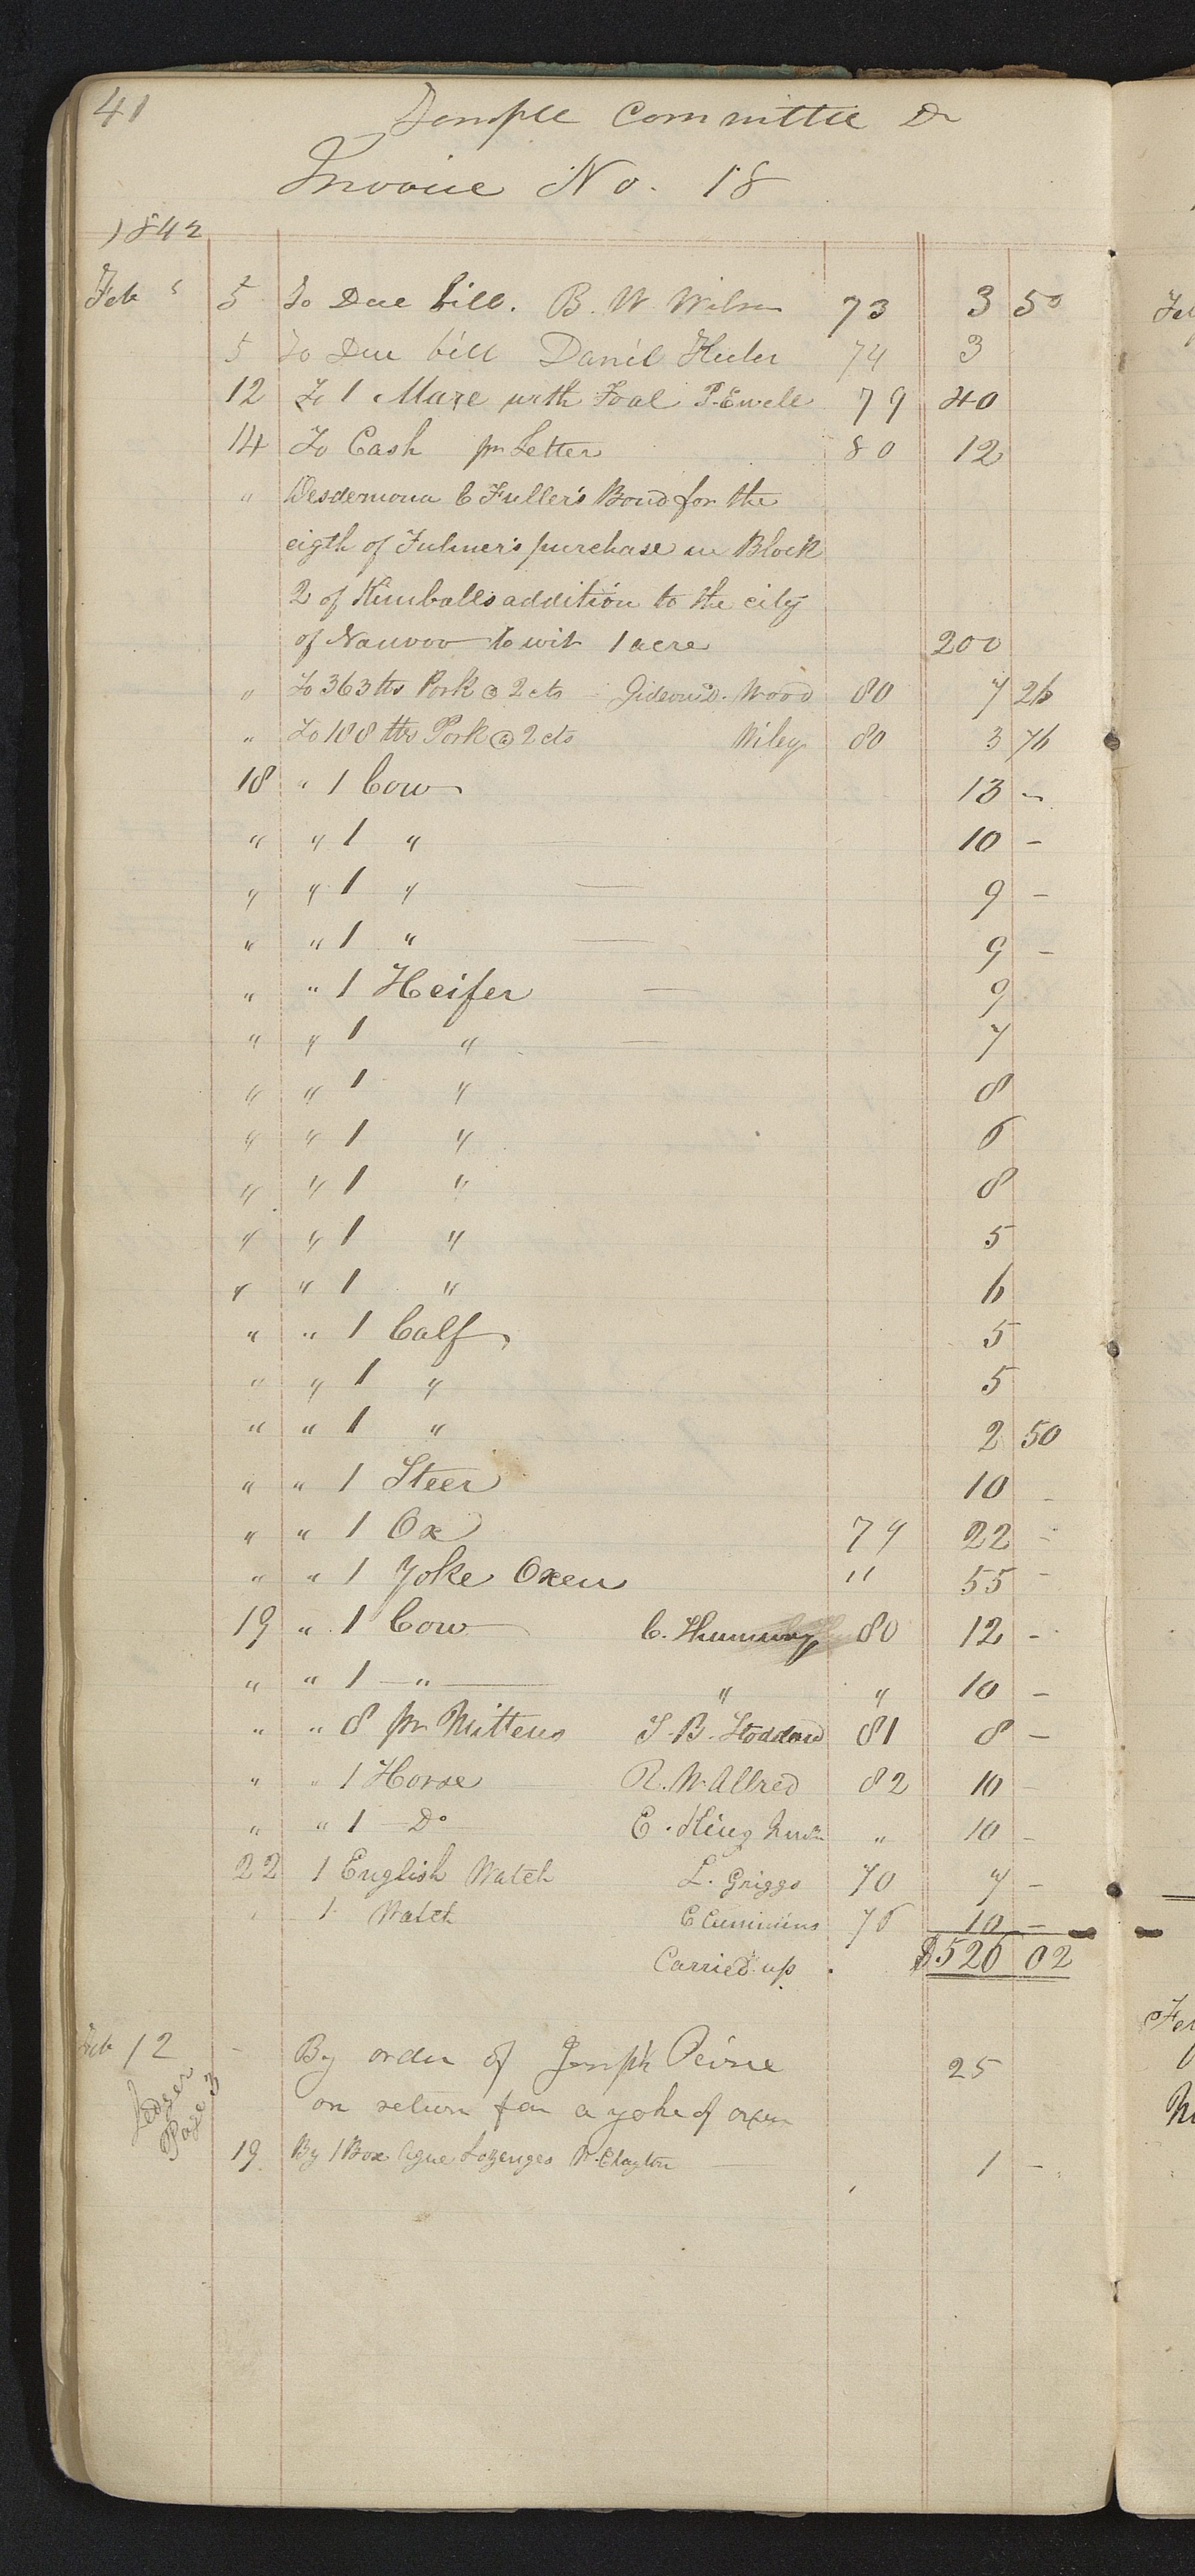 41
Temple Committee Dr
Invoice No. 18
1842
Feb 5 To Due bill. B. W. Wilson 73 3 50
5 To Due bill Daniel 74 3
12 To 1 Mare with Foal P. Ewell 79 40
14 To Cash pr Letter 80 12
" Desdemona C Fuller's Bond for the
eigth of Fulmer's purchase in Block
2 of Kimballs addition to the city
of Nauvoo to wit 1 acre 200
" To 363 lbs Pork @ 2 cts Gideon D. Wood 80 7 26
" To 188 lbs Pork @ 2 cts Wiley 80 3 76
18 " 1 Cow 13 -
" " 1 " 10 -
" " 1 " — 9 -
" " 1 " — 9 -
" " 1 Heifer — 9
" " 1 " — 7
" " 1 " 8
" " 1 " 6
" " 1 " 8
" " 1 " 5
" " 1 " 6
" " 1 Calf 5
" " 1 " 5
" " 1 " 2 50
" " 1 Steer 10 -
" " 1 Ox 79 22 -
" " 1 Yoke Oxen " 55 -
19 " 1 Cow C. Shumway 80 12 -
" " 1 — " — " " 10 -
" " 8 pr Mittens S. B. Stoddard 81 8 -
" " 1 Horse R. W. Allred 82 10 -
" " 1 — Do E. King " 10 -
22 1 English Watch L. Griggs 70 7 -
" 1 Watch C Cummins 76 10 -
Carried up. $526 02
Feb 12 - By order of Joseph Peirce 25
on return for a yoke of oxen
Ledger
Page 3
19 By 1 Box Ague Lozenges W. Clayton — 1 -